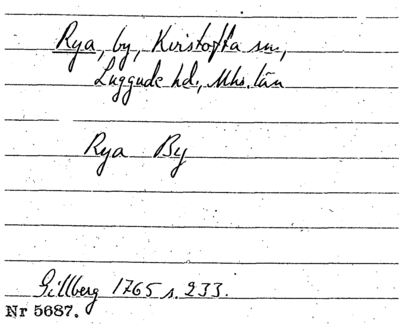 Rya, by, Kvistofta sn,
Luggude hd, Mhs. län
Rya By
Gillberg 1765 s. 233.
Nr 5687.